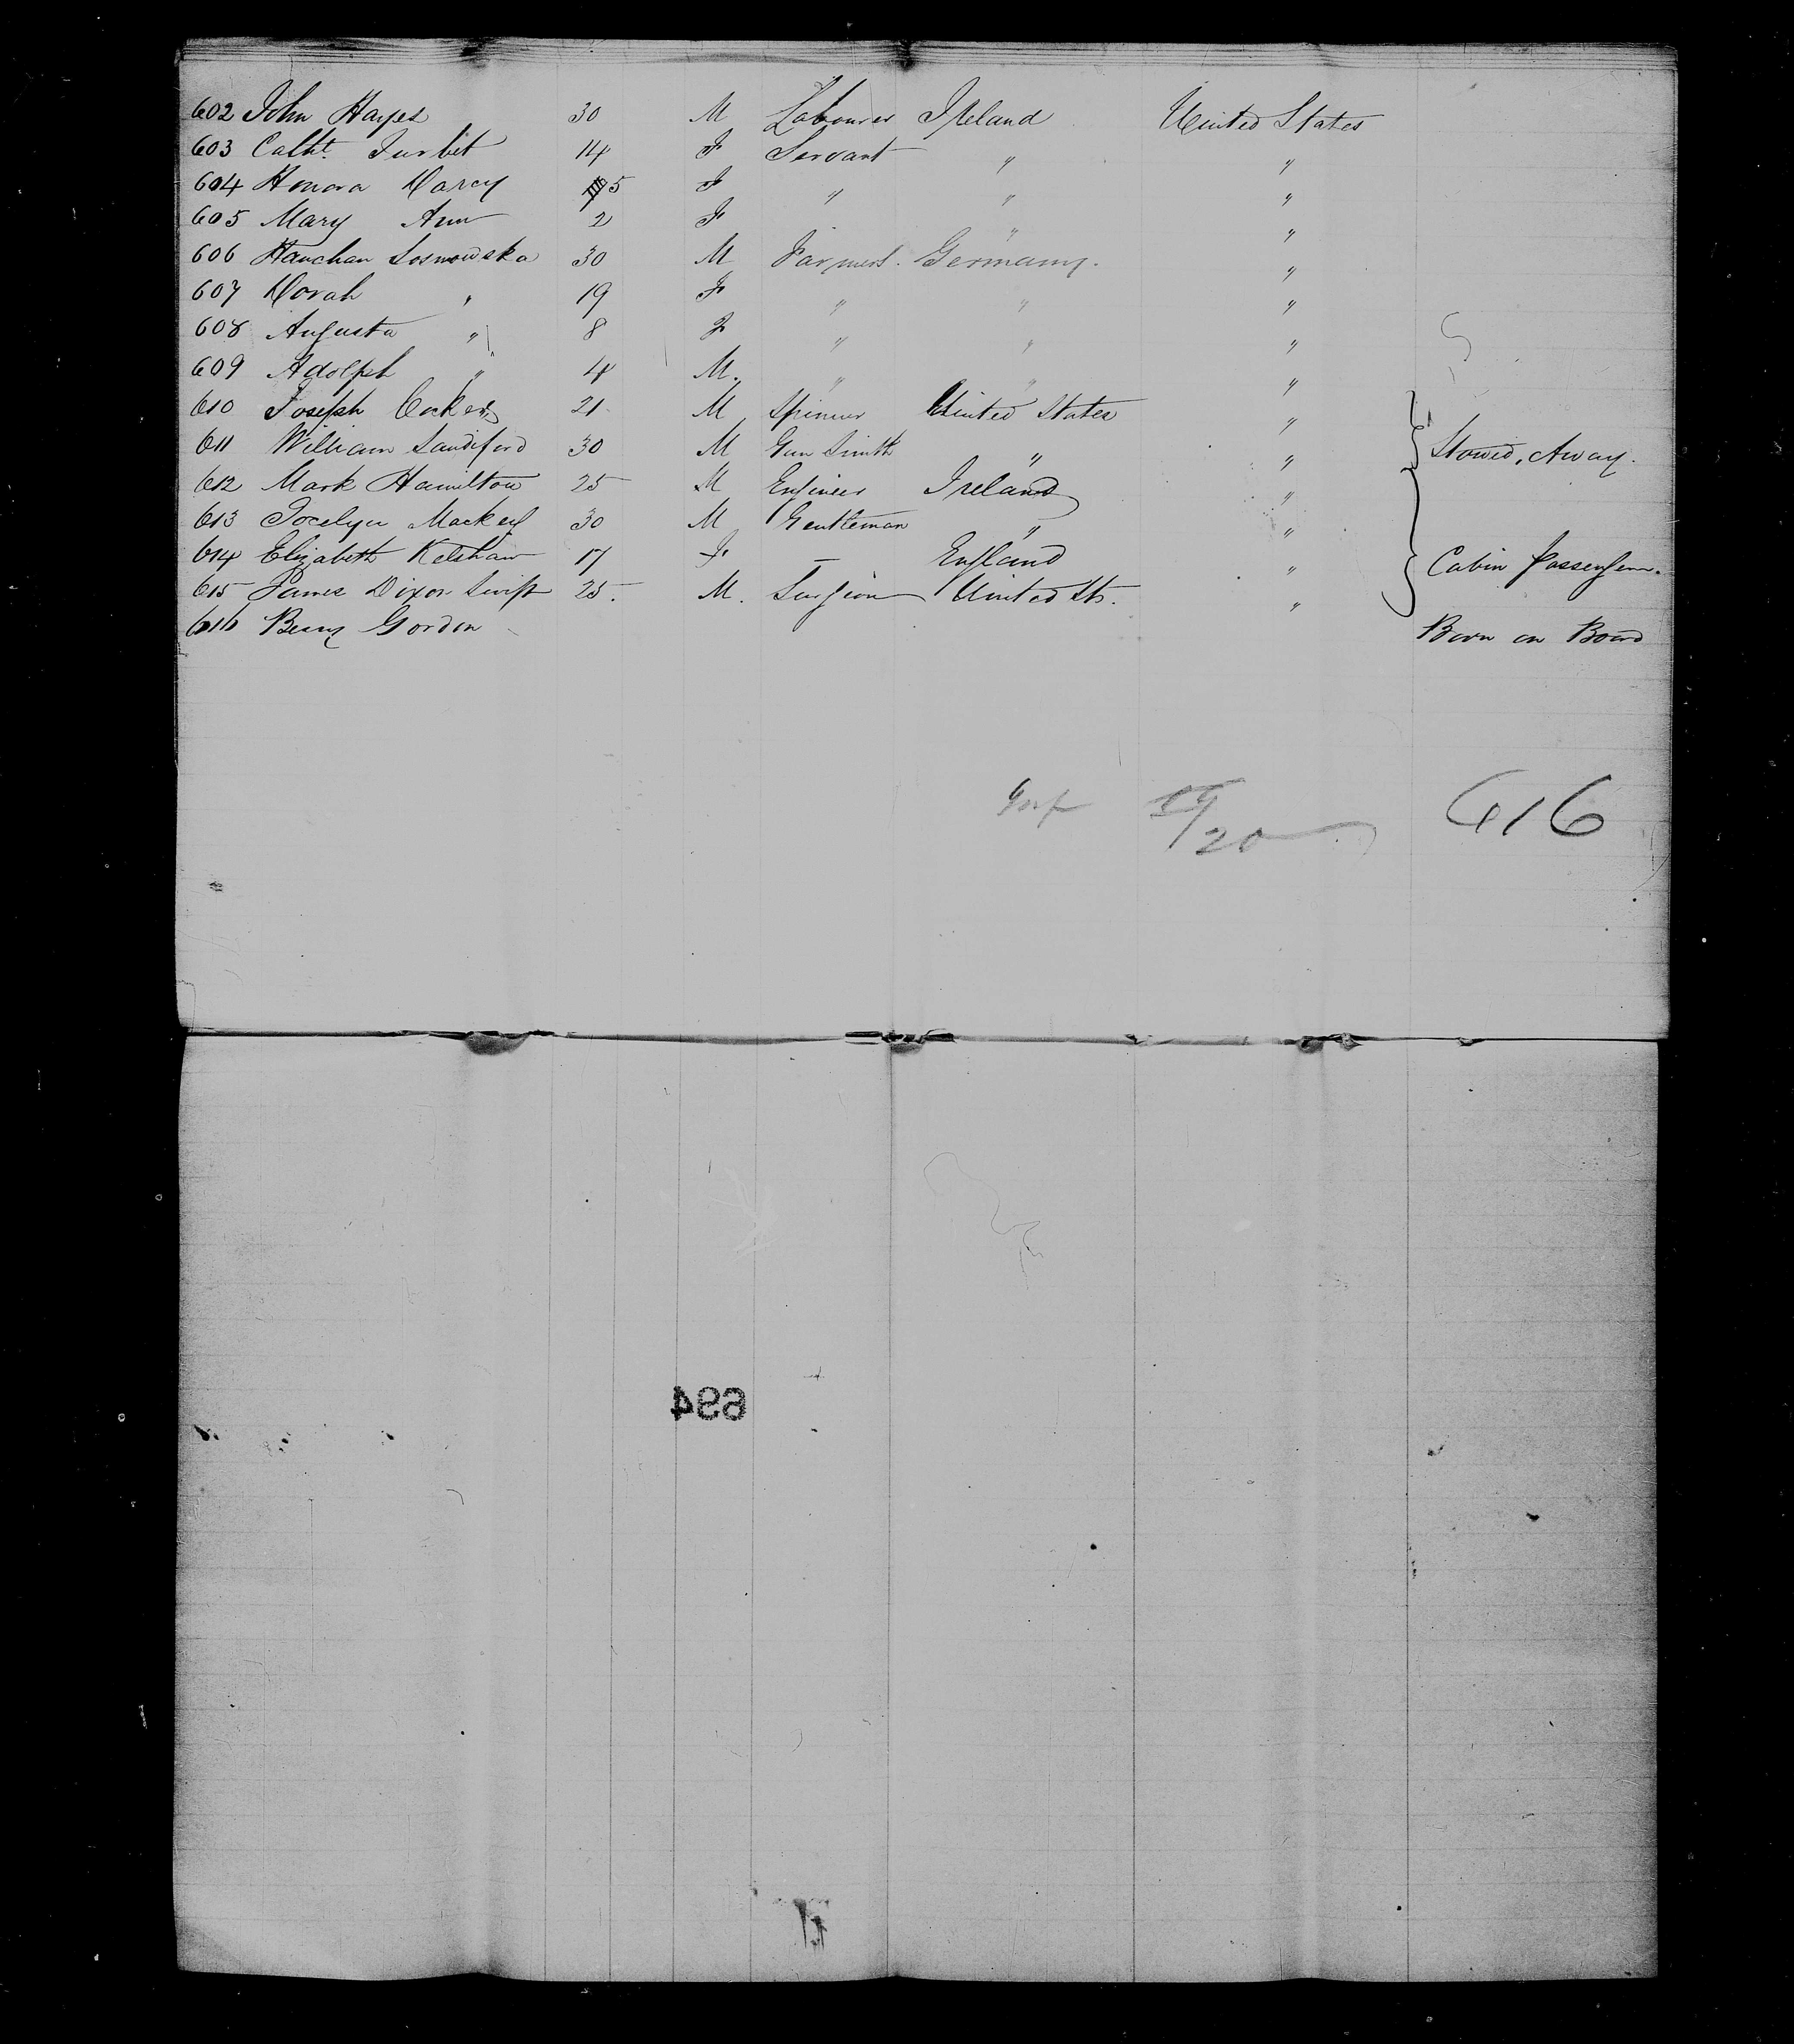 602 John Hayes 30 M Labourer Ireland United States
603 Catht. Turbit 14 F Servant " "
604 Honora Darcy 5 F " " "
605 Mary Ann 2 F " "
606 Hanchan Sosnowska 30 M Farmer. Germany. "
607 Dorah " 19 F " " "
608 Augusta " 8 F " " "
609 Adolph " 4 M. " " "
610 Joseph Cocker 21 M Spinner United States "
611 William Sandiford 30 M Gun Smith " " Stowed, Away.
612 Mark Hamilton 25 M Engineer Ireland "
613 Jocelyn Mackey 30 M Gentleman " "
614 Elizabeth Kelshaw 17 F — England " Cabin Passengers.
615 James Dixon Swift 25. M. Surgeon United Sts. "
616 Gordon Born on Board
20 616
694